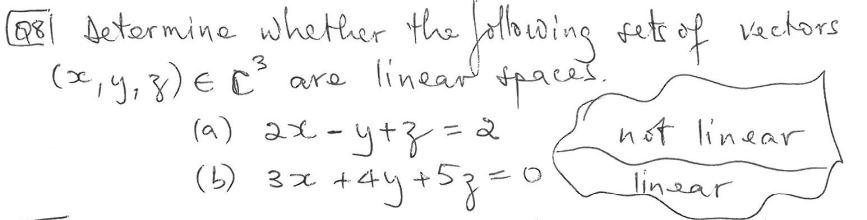 Q8 Determine whether the following sets of vectors
(x, y, z) ∈ ℂ³ are linear spaces.
(a) 2x - y + z = 2 not linear
(b) 3x + 4y + 5z = 0 linear